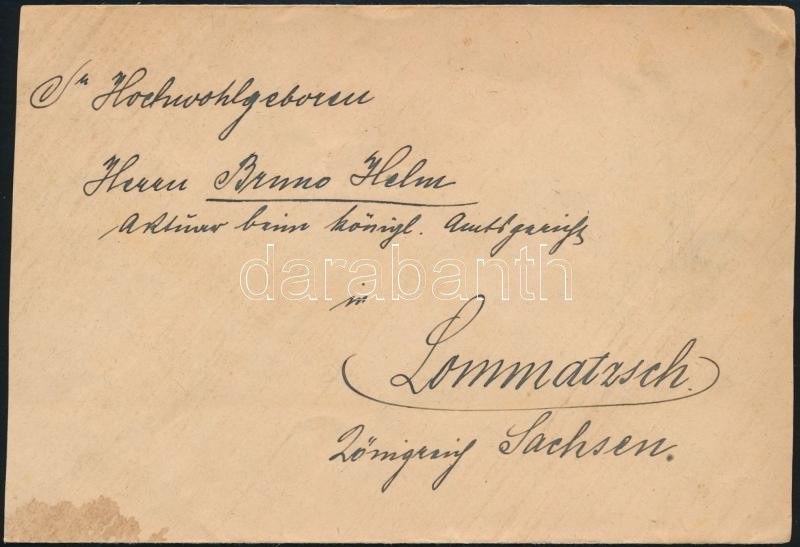 Sr Hochwohlgeboren
Herrn Bruno Helm
Aktuar beim königl. Amtsgericht
darabanth
in
Lommatzsch.
Königreich Sachsen.